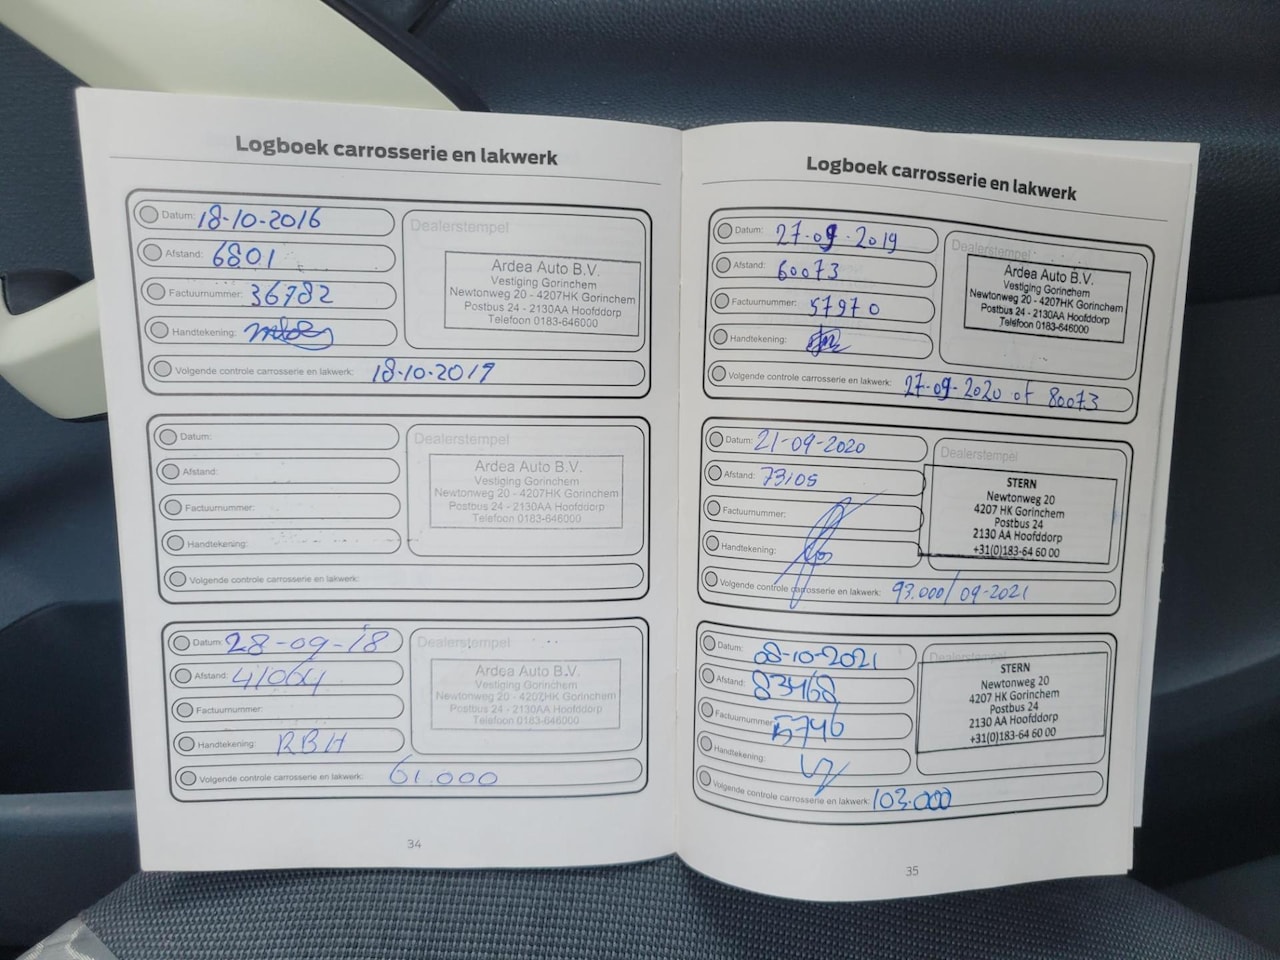 Logboek carrosserie en lakwerk
Datum: 18-10-2016
Afstand: 6801
Factuurnummer: 36782
Handtekening:
Volgende controle carrosserie en lakwerk: 18-10-2017
Dealerstempel
Ardea Auto B.V.
Vestiging Gorinchem
Newtonweg 20 - 4207HK Gorinchem
Postbus 24 - 2130AA Hoofddorp
Telefoon 0183-646000
Datum:
Afstand:
Factuurnummer:
Handtekening:
Volgende controle carrosserie en lakwerk:
Dealerstempel
Ardea Auto B.V.
Vestiging Gorinchem
Newtonweg 20 - 4207HK Gorinchem
Postbus 24 - 2130AA Hoofddorp
Telefoon 0183-646000
Datum: 28-09-18
Afstand: 41064
Factuurnummer:
Handtekening: RBH
Volgende controle carrosserie en lakwerk: 61.000
Dealerstempel
Ardea Auto B.V.
Vestiging Gorinchem
Newtonweg 20 - 4207HK Gorinchem
Postbus 24 - 2130AA Hoofddorp
Telefoon 0183-646000
34
Logboek carrosserie en lakwerk
Datum: 27-09-2019
Afstand: 60073
Factuurnummer: 57970
Handtekening:
Volgende controle carrosserie en lakwerk: 27-09-2020 of 80073
Dealerstempel
Ardea Auto B.V.
Vestiging Gorinchem
Newtonweg 20 - 4207HK Gorinchem
Postbus 24 - 2130AA Hoofddorp
Telefoon 0183-646000
Datum: 21-09-2020
Afstand: 73105
Factuurnummer:
Handtekening:
Volgende controle carrosserie en lakwerk: 93.000/09-2021
Dealerstempel
STERN
Newtonweg 20
4207 HK Gorinchem
Postbus 24
2130 AA Hoofddorp
+31(0)183-64 60 00
Datum: 08-10-2021
Afstand: 83468
Factuurnummer: 5746
Handtekening:
Volgende controle carrosserie en lakwerk: 103.000
Dealerstempel
STERN
Newtonweg 20
4207 HK Gorinchem
Postbus 24
2130 AA Hoofddorp
+31(0)183-64 60 00
35